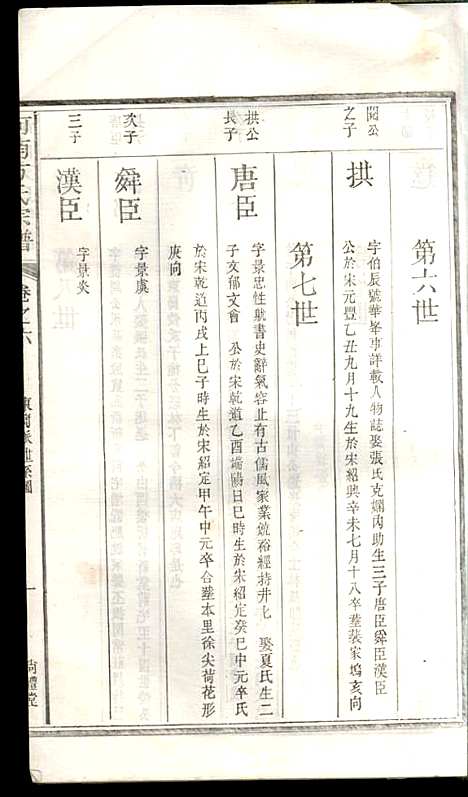 第六世
閱公
之子
拱
字伯辰號華峯事詳載人物誌娶張氏克嫻內助生三子唐臣舜臣漢臣
公於宋元豐乙丑九月十九生於宋紹興辛未七月十八卒塟裴家塢亥向
第七世
拱公
長子
唐臣
字景忠性耽書史辭氣容止有古儒風家業饒裕經持井七 娶夏氏生二
子友郁文會 公於宋乾道乙酉端陽日巳時生於宋紹定癸巳中元卒氏
於宋乾道丙戌上巳子時生於宋紹定甲午中元卒合塟本里徐尖荷花形
庚向
次子
舜臣
字景虞
三子
漢臣
字景炎
河南方氏宗譜
卷之六
派世系圖
一
尚禮堂